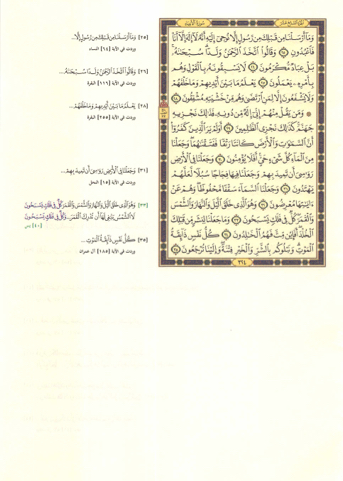 سورة الأنبياء
وَمَا أَرْسَلْنَا مِن قَبْلِكَ مِن رَّسُولٍ إِلَّا نُوحِي إِلَيْهِ أَنَّهُ لَا إِلَٰهَ إِلَّا أَنَا
فَاعْبُدُونِ ﴿٢٥﴾ وَقَالُوا اتَّخَذَ الرَّحْمَٰنُ وَلَدًا سُبْحَانَهُ
بَلْ عِبَادٌ مُّكْرَمُونَ ﴿٢٦﴾ لَا يَسْبِقُونَهُ بِالْقَوْلِ وَهُم
بِأَمْرِهِ يَعْمَلُونَ ﴿٢٧﴾ يَعْلَمُ مَا بَيْنَ أَيْدِيهِمْ وَمَا خَلْفَهُمْ
وَلَا يَشْفَعُونَ إِلَّا لِمَنِ ارْتَضَىٰ وَهُم مِّنْ خَشْيَتِهِ مُشْفِقُونَ ﴿٢٨﴾
۞ وَمَن يَقُلْ مِنْهُمْ إِنِّي إِلَٰهٌ مِّن دُونِهِ فَذَٰلِكَ نَجْزِيهِ
جَهَنَّمَ كَذَٰلِكَ نَجْزِي الظَّالِمِينَ ﴿٢٩﴾ أَوَلَمْ يَرَ الَّذِينَ كَفَرُوا
أَنَّ السَّمَاوَاتِ وَالْأَرْضَ كَانَتَا رَتْقًا فَفَتَقْنَاهُمَا وَجَعَلْنَا
مِنَ الْمَاءِ كُلَّ شَيْءٍ حَيٍّ أَفَلَا يُؤْمِنُونَ ﴿٣٠﴾ وَجَعَلْنَا فِي الْأَرْضِ
رَوَاسِيَ أَن تَمِيدَ بِهِمْ وَجَعَلْنَا فِيهَا فِجَاجًا سُبُلًا لَّعَلَّهُمْ
يَهْتَدُونَ ﴿٣١﴾ وَجَعَلْنَا السَّمَاءَ سَقْفًا مَّحْفُوظًا وَهُمْ عَنْ
آيَاتِهَا مُعْرِضُونَ ﴿٣٢﴾ وَهُوَ الَّذِي خَلَقَ اللَّيْلَ وَالنَّهَارَ وَالشَّمْسَ
وَالْقَمَرَ كُلٌّ فِي فَلَكٍ يَسْبَحُونَ ﴿٣٣﴾ وَمَا جَعَلْنَا لِبَشَرٍ مِّن قَبْلِكَ
الْخُلْدَ أَفَإِن مِّتَّ فَهُمُ الْخَالِدُونَ ﴿٣٤﴾ كُلُّ نَفْسٍ ذَائِقَةُ
الْمَوْتِ وَنَبْلُوكُم بِالشَّرِّ وَالْخَيْرِ فِتْنَةً وَإِلَيْنَا تُرْجَعُونَ ﴿٣٥﴾
٣٢٤
[٢٥] وَمَا أَرْسَلْنَا مِن قَبْلِكَ مِن رَّسُولٍ إِلَّا...
وردت في الآية [٦٤] النساء
[٢٦] وَقَالُوا اتَّخَذَ الرَّحْمَٰنُ وَلَدًا سُبْحَانَهُ...
وردت في الآية [١١٦] البقرة
[٢٨] يَعْلَمُ مَا بَيْنَ أَيْدِيهِمْ وَمَا خَلْفَهُمْ...
وردت في الآية [٢٥٥] البقرة
[٣١] وَجَعَلْنَا فِي الْأَرْضِ رَوَاسِيَ أَن تَمِيدَ بِهِمْ...
وردت في الآية [١٥] النحل
[٣٣] وَهُوَ الَّذِي خَلَقَ اللَّيْلَ وَالنَّهَارَ وَالشَّمْسَ وَالْقَمَرَ كُلٌّ فِي فَلَكٍ يَسْبَحُونَ
لَا الشَّمْسُ يَنبَغِي لَهَا أَن تُدْرِكَ الْقَمَرَ...وَكُلٌّ فِي فَلَكٍ يَسْبَحُونَ
[٤٠] يس
[٣٥] كُلُّ نَفْسٍ ذَائِقَةُ الْمَوْتِ...
وردت في الآية [١٨٥] آل عمران